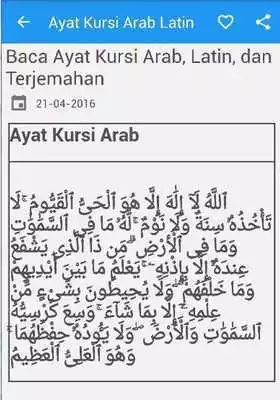 Ayat Kursi Arab Latin
Baca Ayat Kursi Arab, Latin, dan
Terjemahan
21-04-2016
Ayat Kursi Arab
اللَّهُ لَآ إِلَٰهَ إِلَّا هُوَ الْحَيُّ الْقَيُّومُ ۚ لَا
تَأْخُذُهُ سِنَةٌ وَلَا نَوْمٌ ۚ لَّهُ مَا فِي السَّمَٰوَٰتِ
وَمَا فِي الْأَرْضِ ۗ مَن ذَا الَّذِي يَشْفَعُ
عِندَهُ إِلَّا بِإِذْنِهِ ۚ يَعْلَمُ مَا بَيْنَ أَيْدِيهِمْ
وَمَا خَلْفَهُمْ ۖ وَلَا يُحِيطُونَ بِشَيْءٍ مِّنْ
عِلْمِهِ إِلَّا بِمَا شَآءَ ۚ وَسِعَ كُرْسِيُّهُ
السَّمَٰوَٰتِ وَالْأَرْضَ ۖ وَلَا يَئُودُهُ حِفْظُهُمَا ۚ
وَهُوَ الْعَلِيُّ الْعَظِيمُ